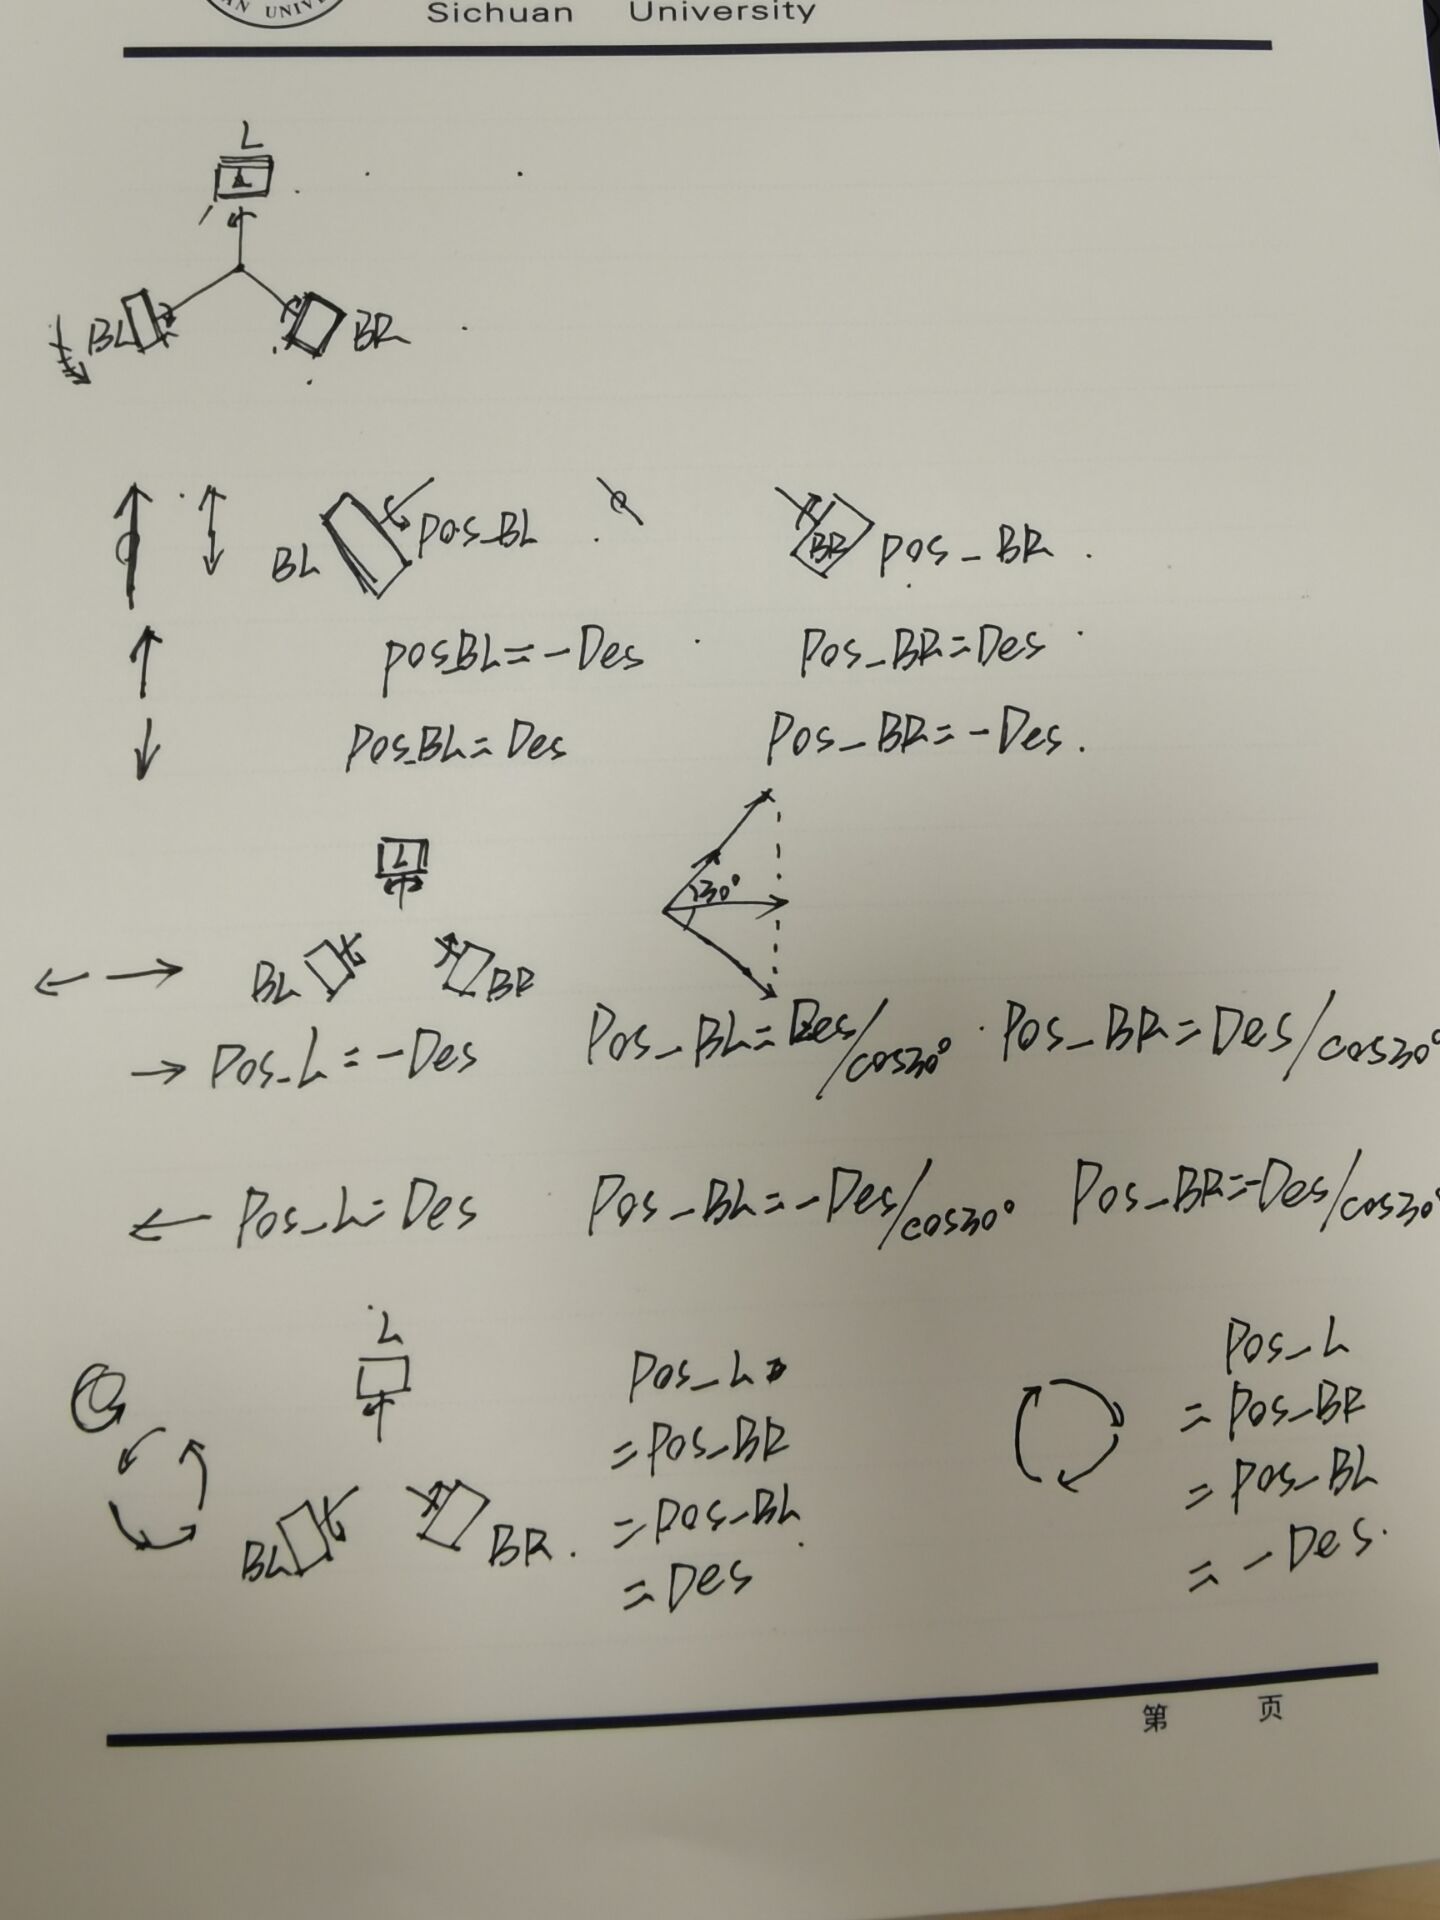 Sichuan University
L
BL
BR
BL
Pos_BL
BR
Pos_BR
Pos_BL=-Des
Pos_BR=Des
Pos_BL=Des
Pos_BR=-Des.
L
30°
BL
BR
→ Pos_L=-Des
Pos_BL=Des/cos30°
Pos_BR=Des/cos30°
← Pos_L=Des
Pos_BL=-Des/cos30°
Pos_BR=-Des/cos30°
L
BL
BR.
Pos_L
=Pos_BR
=Pos_BL
=Des
Pos_L
=Pos_BR
=Pos_BL
=-Des.
第 页